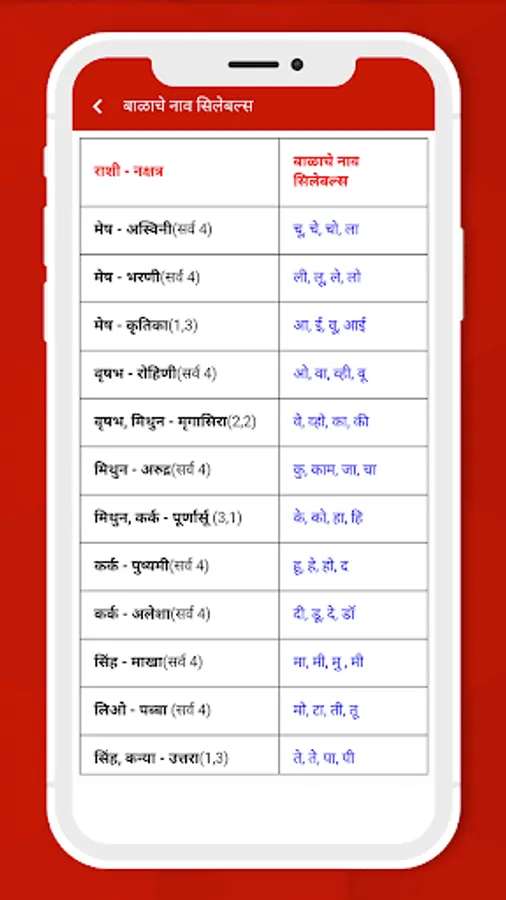 बाळाचे नाव सिलेबल्स
राशी - नक्षत्र
बाळाचे नाव
सिलेबल्स
मेष - अस्विनी(सर्व 4)
चू, चे, चो, ला
मेष - भरणी(सर्व 4)
ली, लू, ले, लो
मेष - कृतिका(1,3)
आ, ई, वू, आई
वृषभ - रोहिणी(सर्व 4)
ओ, वा, व्ही, वू
वृषभ, मिथुन - मृगासिरा(2,2)
वे, व्हो, का, की
मिथुन - अरुद्र(सर्व 4)
कु, काम, जा, चा
मिथुन, कर्क - पूर्णार्सू (3,1)
के, को, हा, हि
कर्क - पुष्यमी(सर्व 4)
हू, हे, हो, द
कर्क - अलेशा(सर्व 4)
दी, डू, दे, डॉ
सिंह - माखा(सर्व 4)
मा, मी, मु , मी
लिओ - पब्बा (सर्व 4)
मो, टा, ती, तू
सिंह, कन्या - उत्तरा(1,3)
ते, ते, पा, पी